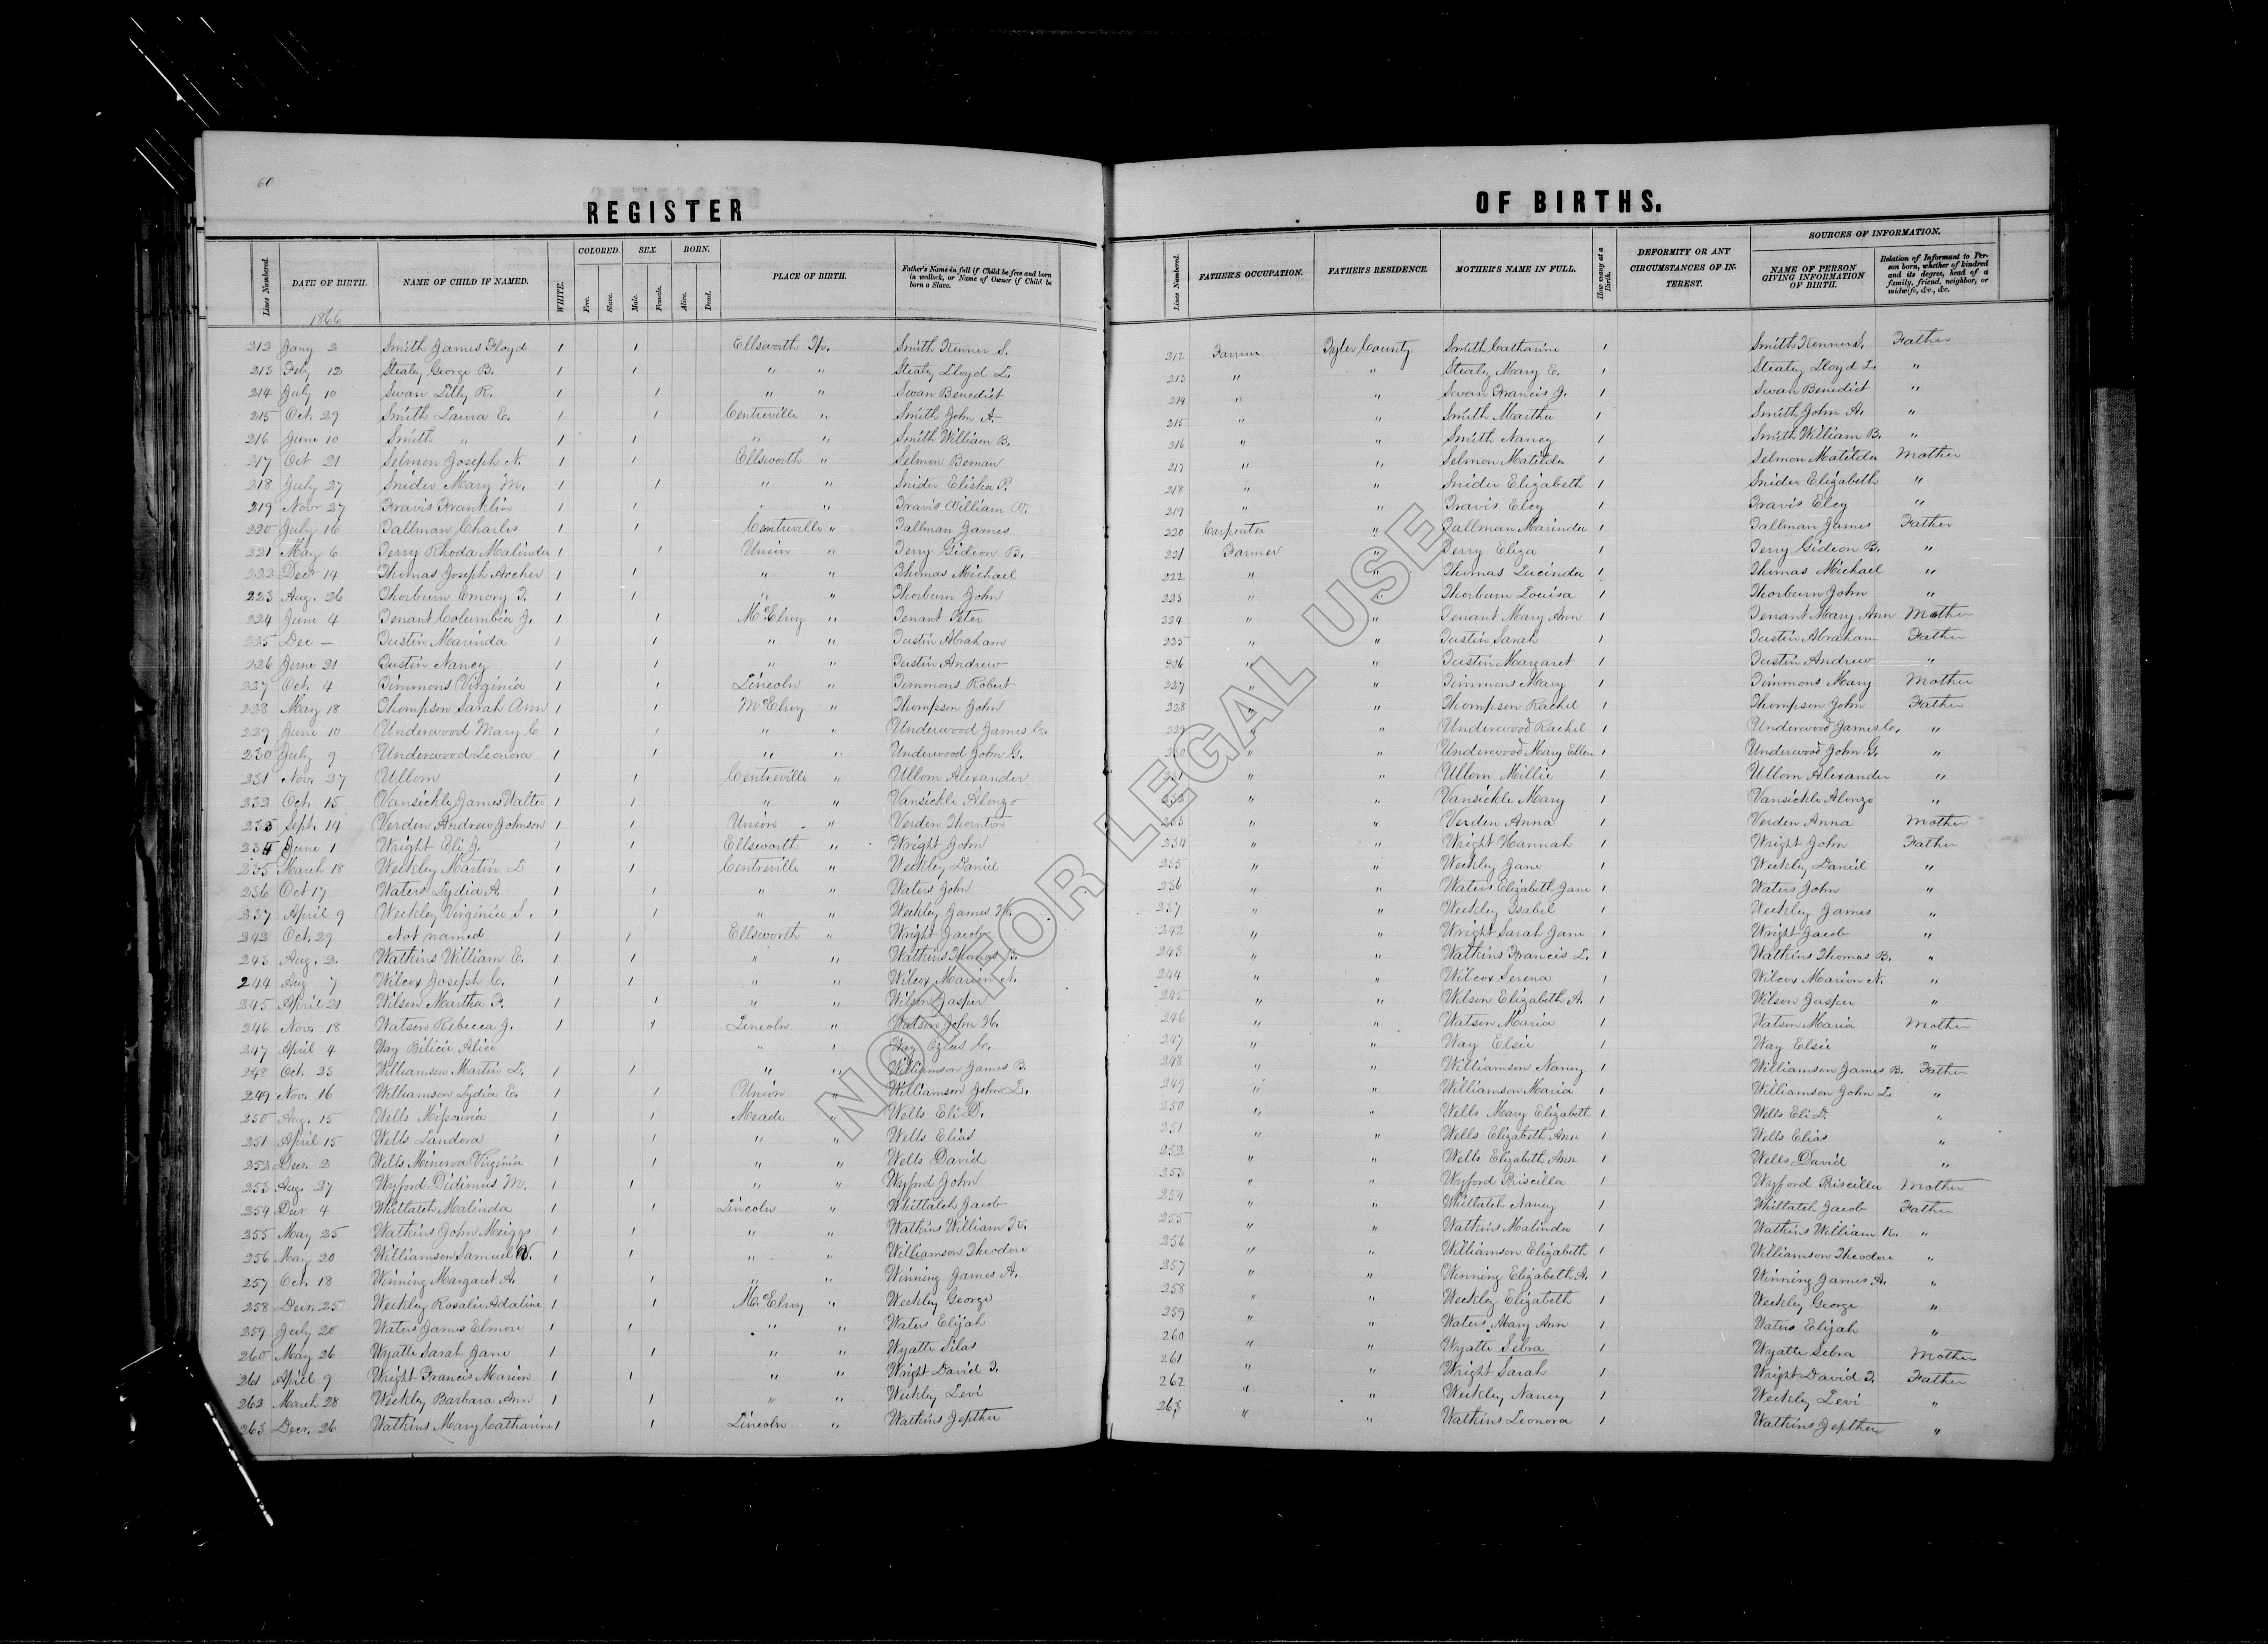 60
REGISTER
OF BIRTHS.
Lines Numbered. DATE OF BIRTH. NAME OF CHILD IF NAMED. WHITE. COLORED. Free. Slave. SEX. Male. Female. BORN. Alive. Dead. PLACE OF BIRTH. Father's Name in full if Child be free and born in wedlock, or Name of Owner if Child be born a Slave.
Lines Numbered. FATHER'S OCCUPATION. FATHER'S RESIDENCE. MOTHER'S NAME IN FULL. How many at a Birth. DEFORMITY OR ANY CIRCUMSTANCES OF INTEREST. SOURCES OF INFORMATION. NAME OF PERSON GIVING INFORMATION OF BIRTH. Relation of Informant to Person born, whether of kindred and its degree, head of a family, friend, neighbor, or midwife, &c., &c.
1866
212 Jany 2 Smith James Floyd 1 1 Ellsworth Tp. Smith Kenner S. 212 Farmer Tyler County Smith Catharine 1 Smith Kenner S. Father
213 Feby 12 Stealey George B. 1 1 " " Stealey Lloyd L. 213 " " Stealey Mary E. 1 Stealey Lloyd L. "
214 July 10 Swan Litly R. 1 1 " " Swan Benedict 214 " " Swan Francis J. 1 Swan Benedict "
215 Oct. 29 Smith Laura E. 1 1 Centreville " Smith John A. 215 " " Smith Martha 1 Smith John A. "
216 June 10 Smith " 1 1 " " Smith William B. 216 " " Smith Nancy 1 Smith William B. "
217 Oct 21 Selmon Joseph N. 1 1 Ellsworth " Selmon Beman 217 " " Selmon Matilda 1 Selmon Matilda Mother
218 July 27 Snider Mary M. 1 1 " " Snider Elisha P. 218 " " Snider Elizabeth 1 Snider Elizabeth "
219 Nov. 27 Travis Franklin 1 1 " " Travis William W. 219 " " Travis Elcy 1 Travis Elcy "
220 July 16 Tallman Charles 1 1 Centreville " Tallman James 220 Carpenter " Tallman Marinda 1 Tallman James Father
221 May 6 Terry Rhoda Malinda 1 1 Union " Terry Gideon B. 221 Farmer " Terry Eliza 1 Terry Gideon B. "
222 Decr 14 Thomas Joseph Archer 1 1 " " Thomas Michael 222 " " Thomas Lucinda 1 Thomas Michael "
223 Aug. 26 Thorburn Emory T. 1 1 " " Thorburn John 223 " " Thorburn Louisa 1 Thorburn John "
224 June 4 Tenant Columbia J. 1 1 McElroy " Tenant Peter 224 " " Tenant Mary Ann 1 Tenant Mary Ann Mother
225 Dec — Tustin Marinda 1 1 " " Tustin Abraham 225 " " Tustin Sarah 1 Tustin Abraham Father
226 June 21 Tustin Nancy 1 1 " " Tustin Andrew 226 " " Tustin Margaret 1 Tustin Andrew "
227 Oct. 4 Timmons Virginia 1 1 Lincoln " Timmons Robert 227 " " Timmons Mary 1 Timmons Mary Mother
228 May 18 Thompson Sarah Ann 1 1 McElroy " Thompson John 228 " " Thompson Rachel 1 Thompson John Father
229 June 10 Underwood Mary C 1 1 " " Underwood James C. 229 " " Underwood Rachel 1 Underwood James C. "
230 July 9 Underwood Leonora 1 1 " " Underwood John G. 230 " " Underwood Mary Ellen 1 Underwood John G. "
231 Nov. 27 Ullom 1 1 Centreville " Ullom Alexander 231 " " Ullom Millie 1 Ullom Alexander "
232 Oct. 15 Vansickle James Walter 1 1 " " Vansickle Alonzo 232 " " Vansickle Mary 1 Vansickle Alonzo "
233 Sept. 14 Verden Andrew Johnson 1 1 Union " Verden Thornton 233 " " Verden Anna 1 Verden Anna Mother
234 June 1 Wright Eli J. 1 1 Ellsworth " Wright John 234 " " Wright Hannah 1 Wright John Father
235 March 18 Weekley Martin L 1 1 Centreville " Weekley Daniel 235 " " Weekley Jane 1 Weekley Daniel "
236 Oct 17 Waters Lydia A. 1 1 " " Waters John 236 " " Waters Elizabeth Jane 1 Waters John "
237 April 9 Weekley Virginia S. 1 1 " " Weekley James W. 237 " " Weekley Isabel 1 Weekley James "
242 Oct. 29 Not named 1 1 Ellsworth " Wright Jacob 242 " " Wright Sarah Jane 1 Wright Jacob "
243 Aug. 2. Watkins William E. 1 1 " " Watkins Thomas B. 243 " " Watkins Francis L. 1 Watkins Thomas B. "
244 Aug 7 Wilcox Joseph C. 1 1 " " Wilcox Marion N. 244 " " Wilcox Serena 1 Wilcox Marion N. "
245 April 21 Wilson Martha F. 1 1 " " Wilson Jasper 245 " " Wilson Elizabeth A. 1 Wilson Jasper "
246 Nov. 18 Watson Rebecca J. 1 1 Lincoln " Watson John H. 246 " " Watson Maria 1 Watson Maria Mother
247 April 4 Way Bilicie Alice " " Way Ozias C. 247 " " Way Elsie 1 Way Elsie "
248 Oct. 23 Williamson Martin L. 1 1 " " Williamson James B. 248 " " Williamson Nancy 1 Williamson James B. Father
249 Nov. 16 Williamson Lydia E. 1 1 Union " Williamson John L. 249 " " Williamson Maria 1 Williamson John L. "
250 Aug. 15 Wells Missouria 1 1 Meade " Wells Eli D. 250 " " Wells Mary Elizabeth 1 Wells Eli D. "
251 April 15 Wells Landora 1 1 " " Wells Elias 251 " " Wells Elizabeth Ann 1 Wells Elias "
252 Decr. 2 Wells Minerva Virginia 1 1 " " Wells David 252 " " Wells Elizabeth Ann 1 Wells David "
253 Aug. 27 Wyford Didimus M. 1 1 " " Wyford John 253 " " Wyford Priscilla 1 Wyford Priscilla Mother
254 Decr 4 Whittatch Malinda 1 1 Lincoln " Whittatch Jacob 254 " " Whittatch Nancy 1 Whittatch Jacob Father
255 May 25 Watkins John Meiggs 1 1 " " Watkins William K. 255 " " Watkins Malinda 1 Watkins William K. "
256 May 20 Williamson Samuel W. 1 1 " " Williamson Theodore 256 " " Williamson Elizabeth 1 Williamson Theodore "
257 Oct. 18 Winning Margaret A. 1 1 " " Winning James A. 257 " " Winning Elizabeth A. 1 Winning James A. "
258 Decr. 25 Weekley Rosalie Adaline 1 1 McElroy " Weekley George 258 " " Weekley Elizabeth 1 Weekley George "
259 July 20 Waters James Elmore 1 1 " " Waters Elijah 259 " " Waters Mary Ann 1 Waters Elijah "
260 May 26 Wyatte Sarah Jane 1 1 " " Wyatte Silas 260 " " Wyatte Sebra 1 Wyatte Sebra Mother
261 April 9 Wright Francis Marion 1 1 " " Wright David T. 261 " " Wright Sarah 1 Wright David T. Father
262 March 28 Weekley Barbara Ann 1 1 " " Weekley Levi 262 " " Weekley Nancy 1 Weekley Levi "
263 Decr. 26 Watkins Mary Catharine 1 1 Lincoln " Watkins Jepther 263 " " Watkins Leonora 1 Watkins Jepther "
NOT FOR LEGAL USE